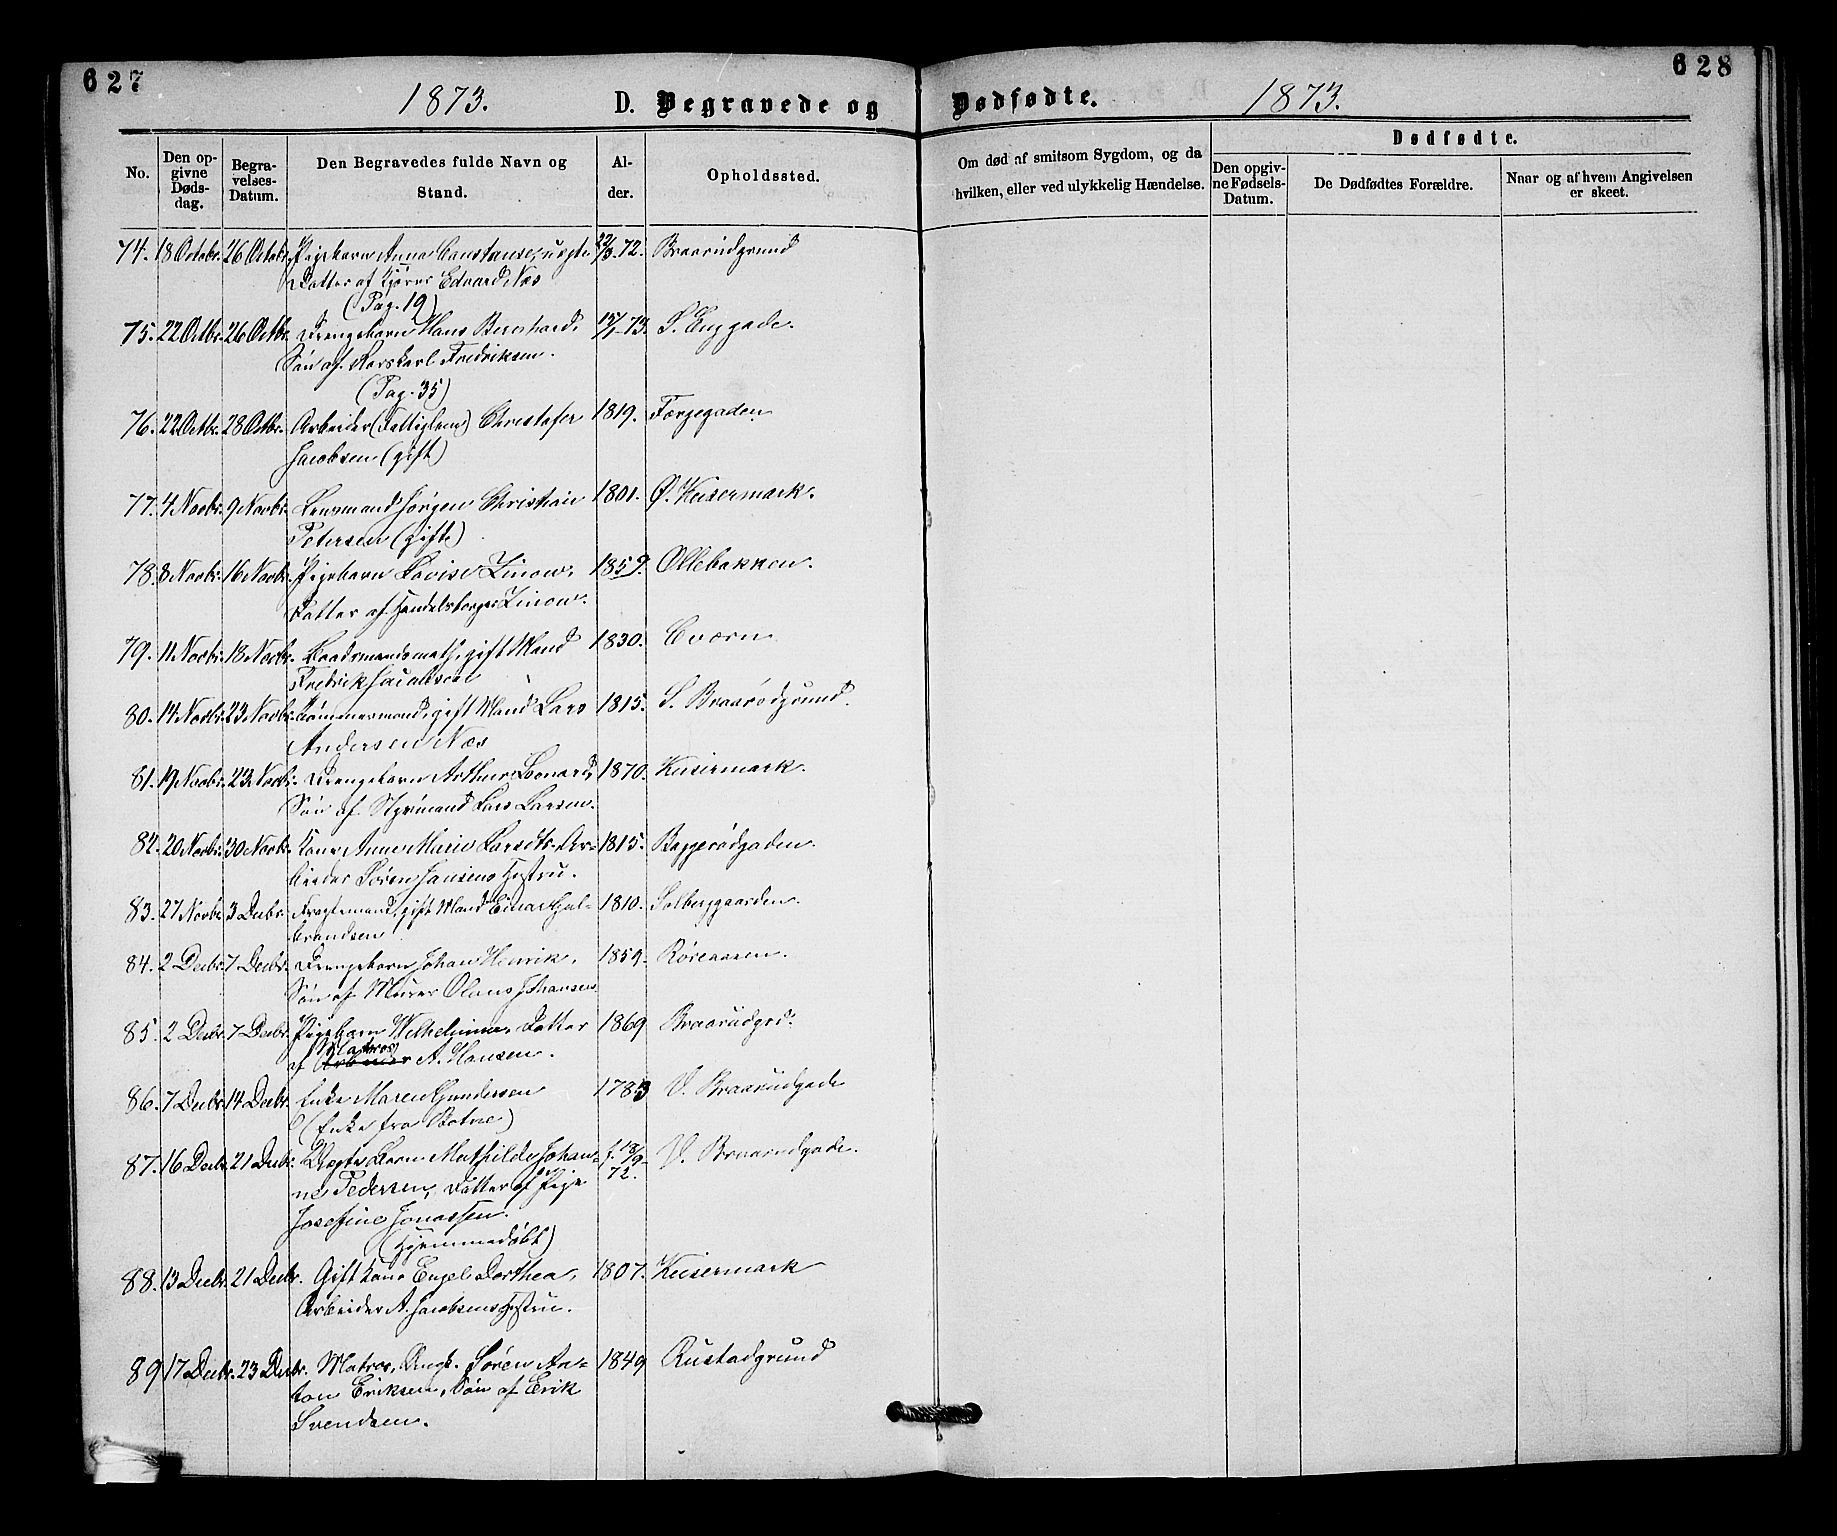 627
628
1873.
D. Begravede og Dødfødte.
1873.
No.
Den opgivne Dødsdag.
Begravelses-Datum.
Den Begravedes fulde Navn og Stand.
Alder.
Opholdssted.
Om død af smitsom Sygdom, og da hvilken, eller ved ulykkelig Hændelse.
Dødfødte.
Den opgivne Fødsels-Datum.
De Dødfødtes Forældre.
Naar og af hvem Angivelsen er skeet.
74. 18 Octobr. 26 Octobr. Pigebarn Anna Constanse, uegte 72. Braarudgrund
Datter af Kjører Edvard Næs
(Pag. 19)
75. 22 Octbr. 26 Octbr. Drengebarn Hans Bernhard, 15/1-73. S. Enggade.
Søn af Karskarl Fredriksen.
(Pag. 35)
76. 22 Octbr. 28 Octbr. Arbeider (Fattiglem) Christofer 1819. Torvegaden.
Jacobsen (gift)
77. 4 Novbr. 9 Novbr. Jørgen Christian 1801. Ø. Keisermark.
Petersen (gift)
78. 8 Novbr. 16 Novbr. Pigebarn Lovise Linow, 1859. Ollebakken.
Datter af Handelsborger Linow.
79. 11 Novbr. 18 Novbr. Baadsmandsmath, gift Mand 1830. Cværn
Fredrik Jacobsen
80. 14 Novbr. 23 Novbr. Tømmermand, gift Mand Lars 1815. S. Braarødgrund.
Andersen Næs
81. 19 Novbr. 23 Novbr. Drengebarn Arthur Leonard, 1870. Keisermark.
Søn af Styrmand Lars Larsen.
82. 20 Novbr. 30 Novbr. Kone Anne Marie Larsdtr. Ar- 1815. Baggerødgaden.
beider Søren Jansens Hustru.
83. 27 Novbr. 3 Decbr. Fragtemand, gift Mand Einar Gul- 1810. Solberggaarden.
brandsen
84. 2 Decbr. 7 Decbr. Drengebarn Johan Henrik, 1859. Røreaasen.
Søn af Murer Olaus Johansen.
85. 2 Decbr. 7 Decbr. Pigebarn Wilhelmine, Datter 1869 Braarudgrd.
Matros
af Arbeider A. Hansen.
86. 7 Decbr. 14 Decbr. Enke Maren Gundersen 1783 V. Braarudgade
(Enke fra Botne)
87. 16 Decbr. 21 Decbr. Uegte Barn Mathilde Johan- f. 18/9- V. Braarudgade.
ne Pedersen, Datter af Pige 72.
Josefine Jonassen.
(Hjemmedøbt)
88. 13 Decbr. 21 Decbr. Gift Kone Engel Dorthea, 1807. Keisermark
Arbeider A. Jacobsens Hustru.
89 17 Decbr. 23 Decbr. Matros, Ungk. Søren An- 1849 Rustadgrund
ton Eriksen, Søn af Erik
Svendsen.